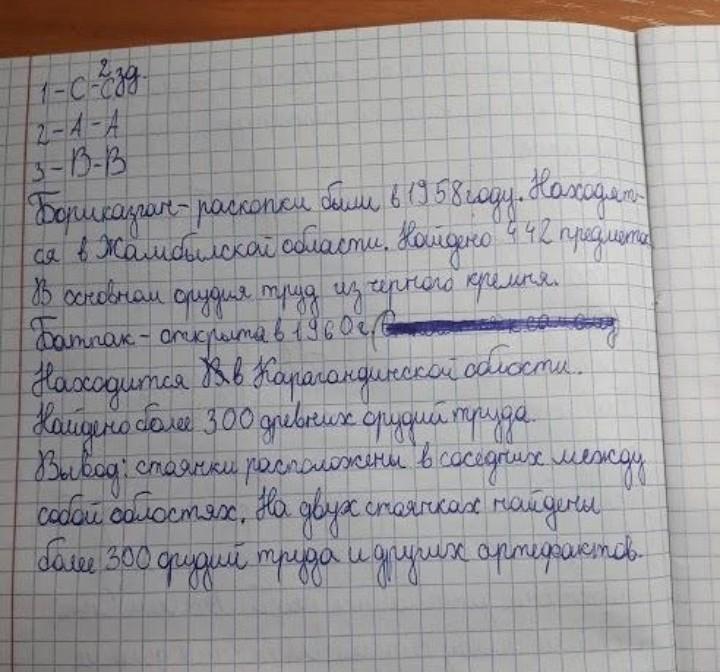 2зд.
1-С-С
2-А-А
3-В-В
Бориказган-раскопки были в 1958 году. Находят-
ся в Жамбылской области. Найдено 442 предмета
В основном орудия труд из черного кремня.
Батпак - открыта в 1960г
Находится в Карагандинской области.
Найдено более 300 древних орудий труда.
Вывод: стоянки расположены в соседних между
собой областях. На двух стоянках найдены
более 300 орудий труда и других артефактов.